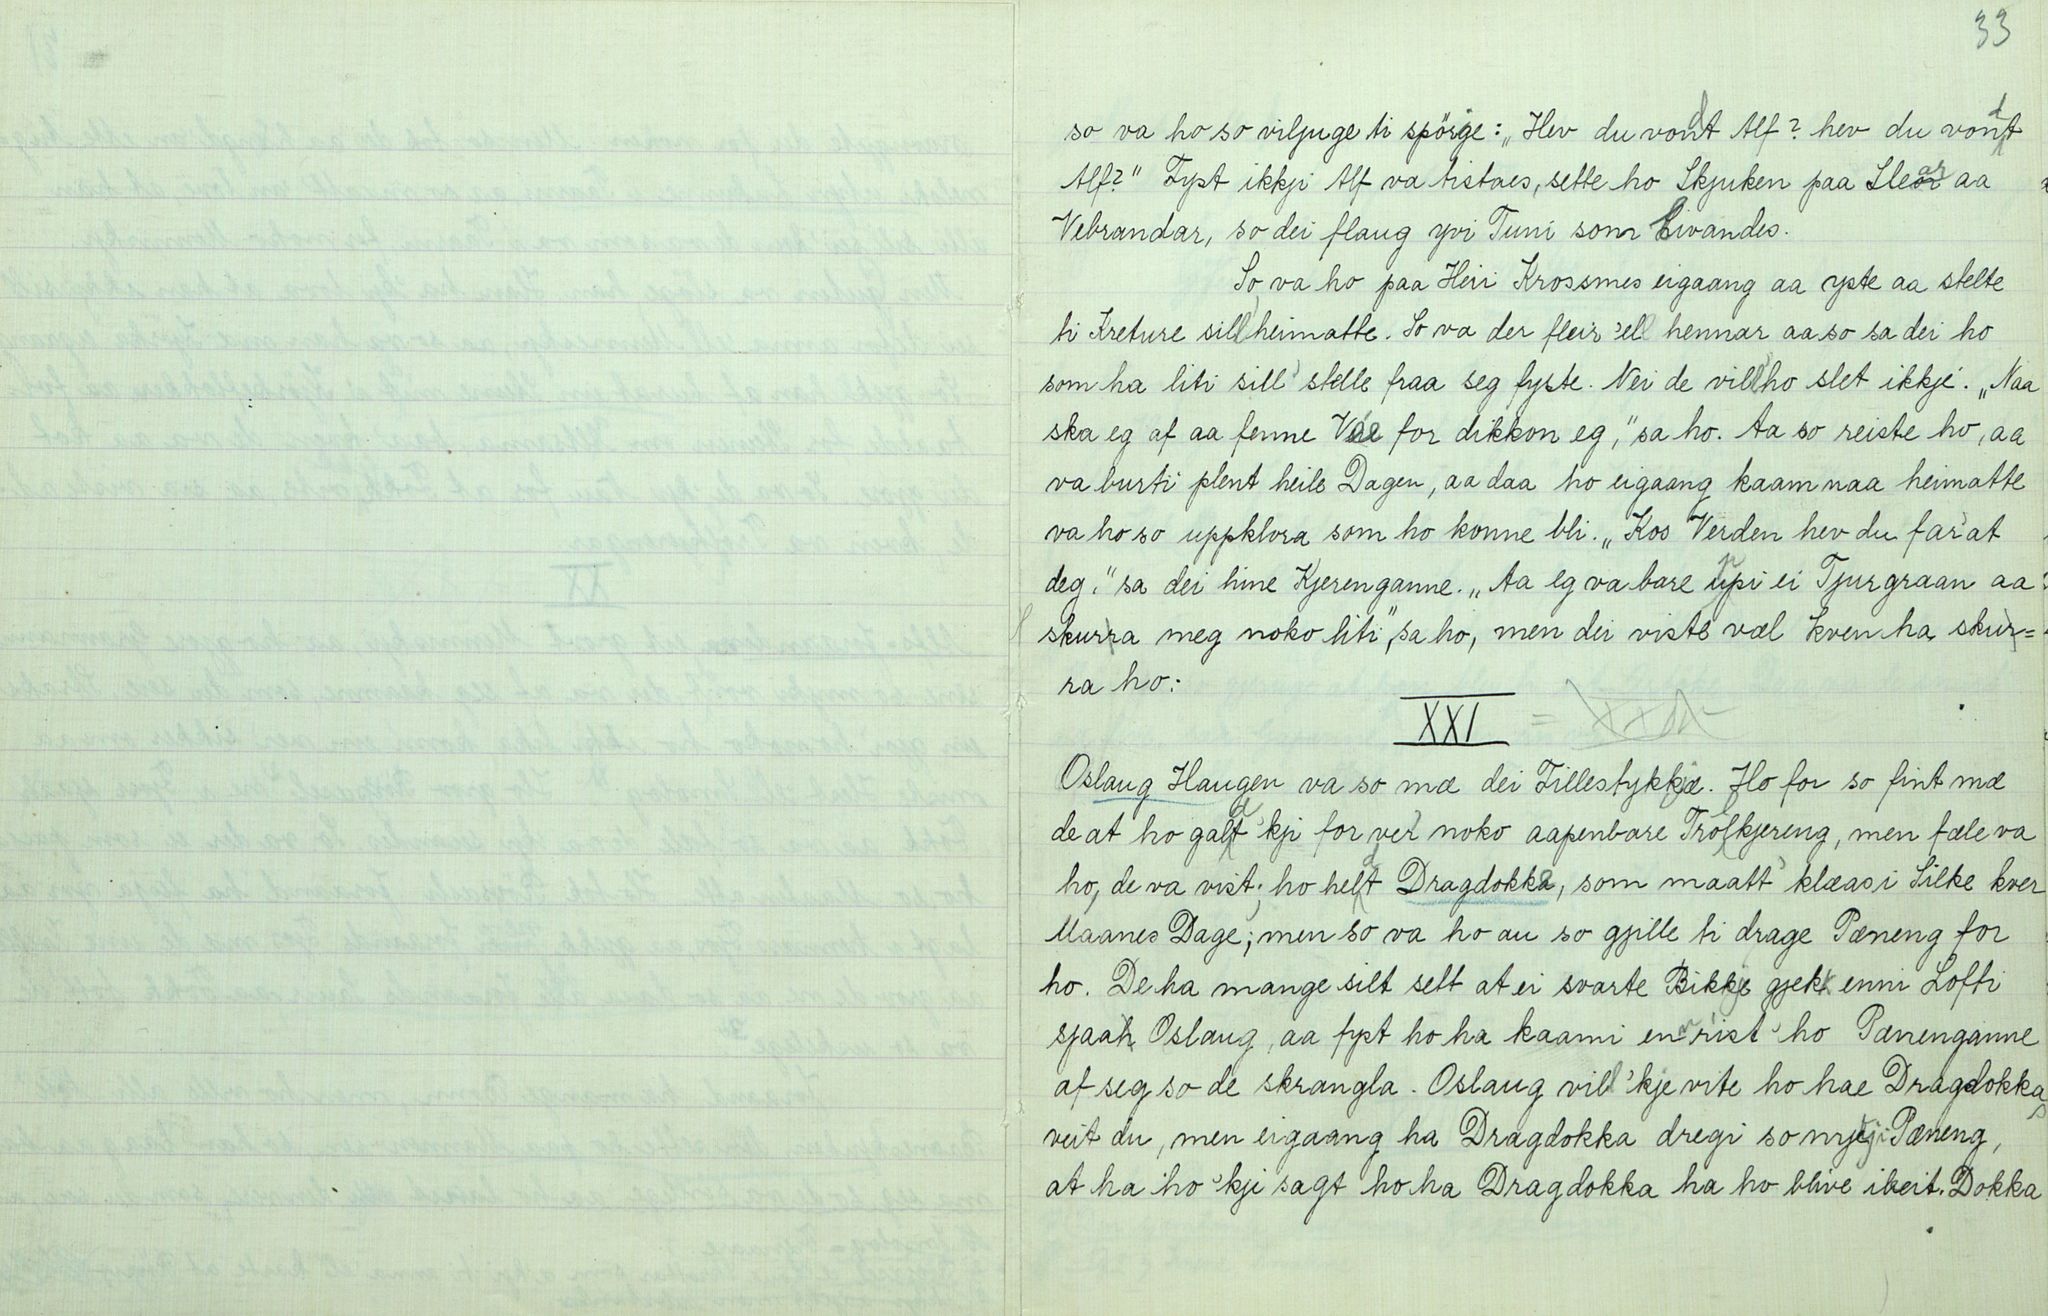 33
so va ho so viljuge ti spörje: „Hev du vondt Alf? hev du vondt
Alf?" Fyst ikkji Alf va tistaes, sette ho Skjuken paa Slear aa
Vebrandar, so dei flaug yvi Tuni som Livandes.
So va ho paa Heiri Krossmes eigaang aa yste aa stelte
ti Kreture sill heimatte. So va der fleir 'ell hennar aa so sa dei ho
som ha liti sill' stelle fraa seg fyste. Nei de vill' ho slet ikkje. „Naa
ska eg af aa fenne Vée for dikkon eg," sa ho. Aa so reiste ho, aa
va burti plent heile Dagen, aa daa ho eigaang kaam naa heimatte
va ho so uppklora som ho konne bli. „Kos Verden hev du far'at
deg." sa dei hine Kjerenganne. „Aa eg va bare uppi ei Tjurgraan aa
skurra meg noko liti", sa ho, men dei viste væl kven ha skur=
ra ho:
XXI =
Oslaug Haugen va so mæ dei Fillestykkjæ. Ho for so fint mæ
de at ho galdt 'kji for ver' noko aapenbare Trolkjereng, men fæle va
ho, de va vist; ho heldt Dragdokka, som maatt' klæas i Silke kver
Maanes Dage; men so va ho au so gjille ti drage Pæneng for
ho. De ha mange silt sett at ei svarte Bikkje gjek enni Lofti
sjaa Oslaug, aa fyst ho ha kaami enn rist' ho Pænenganne
af seg so de skrangla. Oslaug vill 'kje vite ho hae Dragdokka,
veit du, men eigaang ha Dragdokka dregi so mykji Pæneng,
at ha ho 'kji sagt ho ha Dragdokka ha ho blive ibeit. Dokka